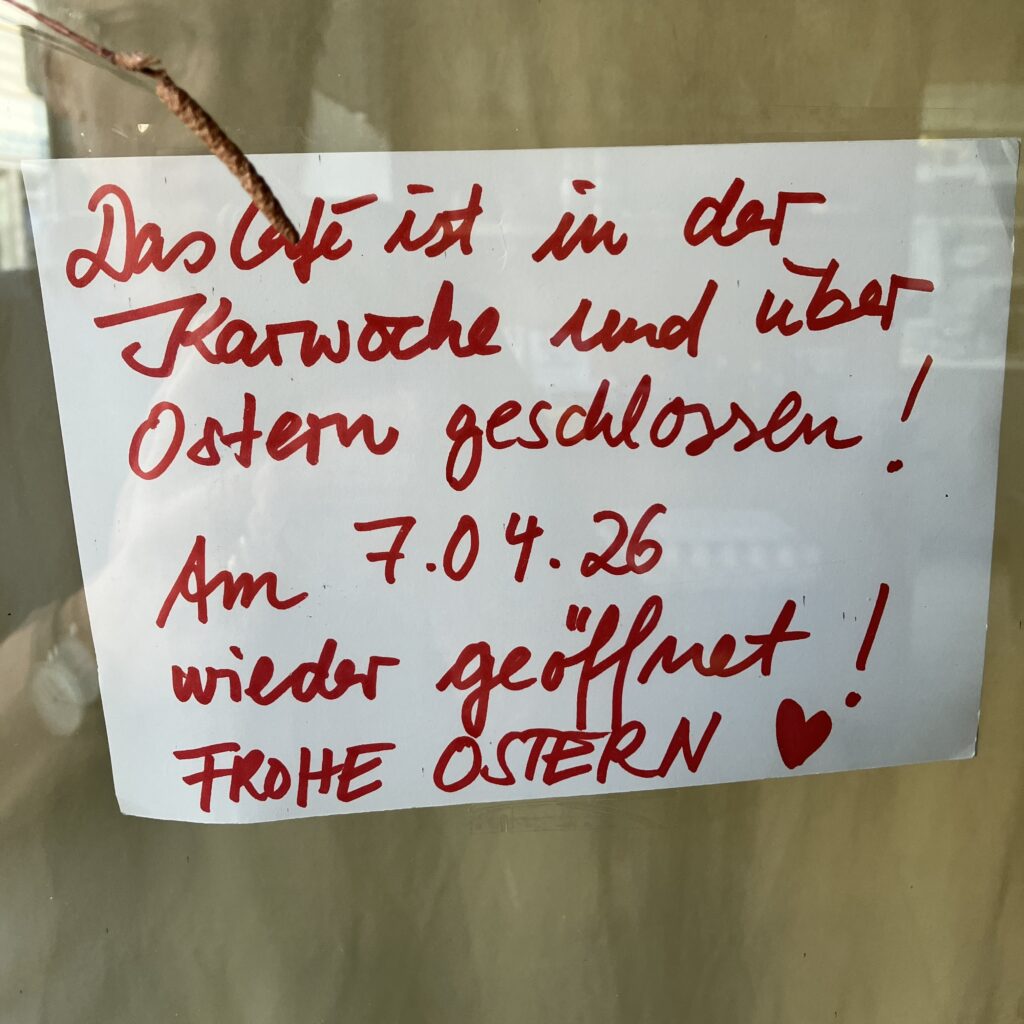 Das Café ist in der
Karwoche und über
Ostern geschlossen!
Am 7.04.26
wieder geöffnet!
FROHE OSTERN ♥